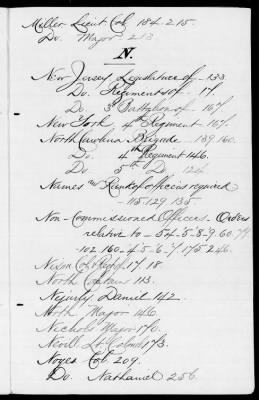 Miller Lieut Col 184-215.
Do. Major 213.
N.
New Jersey Legislature of - 133.
Do. Regiments of - 17.
Do. 3d Battalion of - 167.
New York 4th Regiment 167.
North Carolina Brigade 159.160.
Do. 4th Regiment 146.
Do 5th Do. 124.
Names & Rank of officers required
- 115.129.135.
Non-Commissioned Officers - Orders
relative to - 54-5-8-9.60.
102.160-4-5-6-7.175.246.
Nixon Col 17.18.
North Captain 113.
Daniel 142.
North Major 146.
Nichols Major 170.
Nevill Lt. 173.
Noyes Col. 209.
Do. Nathaniel 256.